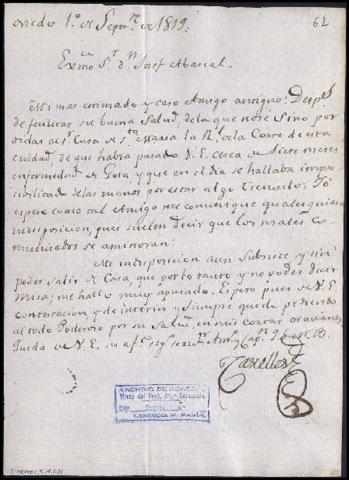 Oviedo 1º de Sepre. de 1819.
62
Exmo Sr. Dn. Josef Abascal.
Mi mas estimado y caro Amigo antiguo: Despues
de felicitar su buena Salud, de la que no sé sino por
oidas al Sr. Cura de Sta. Maria la Rl. de la Corte de esta
Ciudad, de que habia pasado V.E. cerca de Siete meses
enfermedad de Gota, y que en el dia se hallaba impo-
sibilitado de las manos por estar algo Tremulo: Yo
espero como tal Amigo me comunique qualesquiera
indisposicion, pues suelen decir que los males co-
municados se aminoran:
Mi indisposicion aun subsiste y sin
poder salir de Casa, que por lo tanto y no poder decir
Misa; me hallo muy apurado. Espero pues de V.E.
contextacion y de interin y Siempre quedo pidiendo
al todo Poderoso por su Salud, en mis cortas oraciones,
Queda de V.E. su afmo. Amo. y Capn. Q.B.S.M.
ARCHIVO DE ABASCAL
Virrey del Perú
Legajo